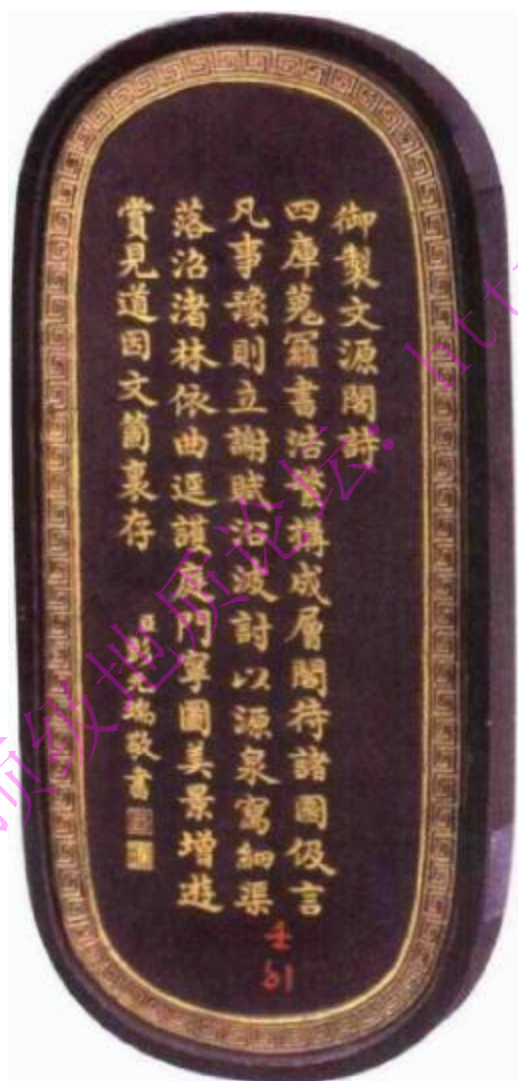 御製文源閣詩
四庫蒐羅書浩繁構成層閣待諸園伋言
凡事豫則立謝賦沿波討以源泉寫細渠
落沼渚林依曲逕護庭門寧圖美景增遊
賞見道因文箇裏存
臣彭元瑞敬書